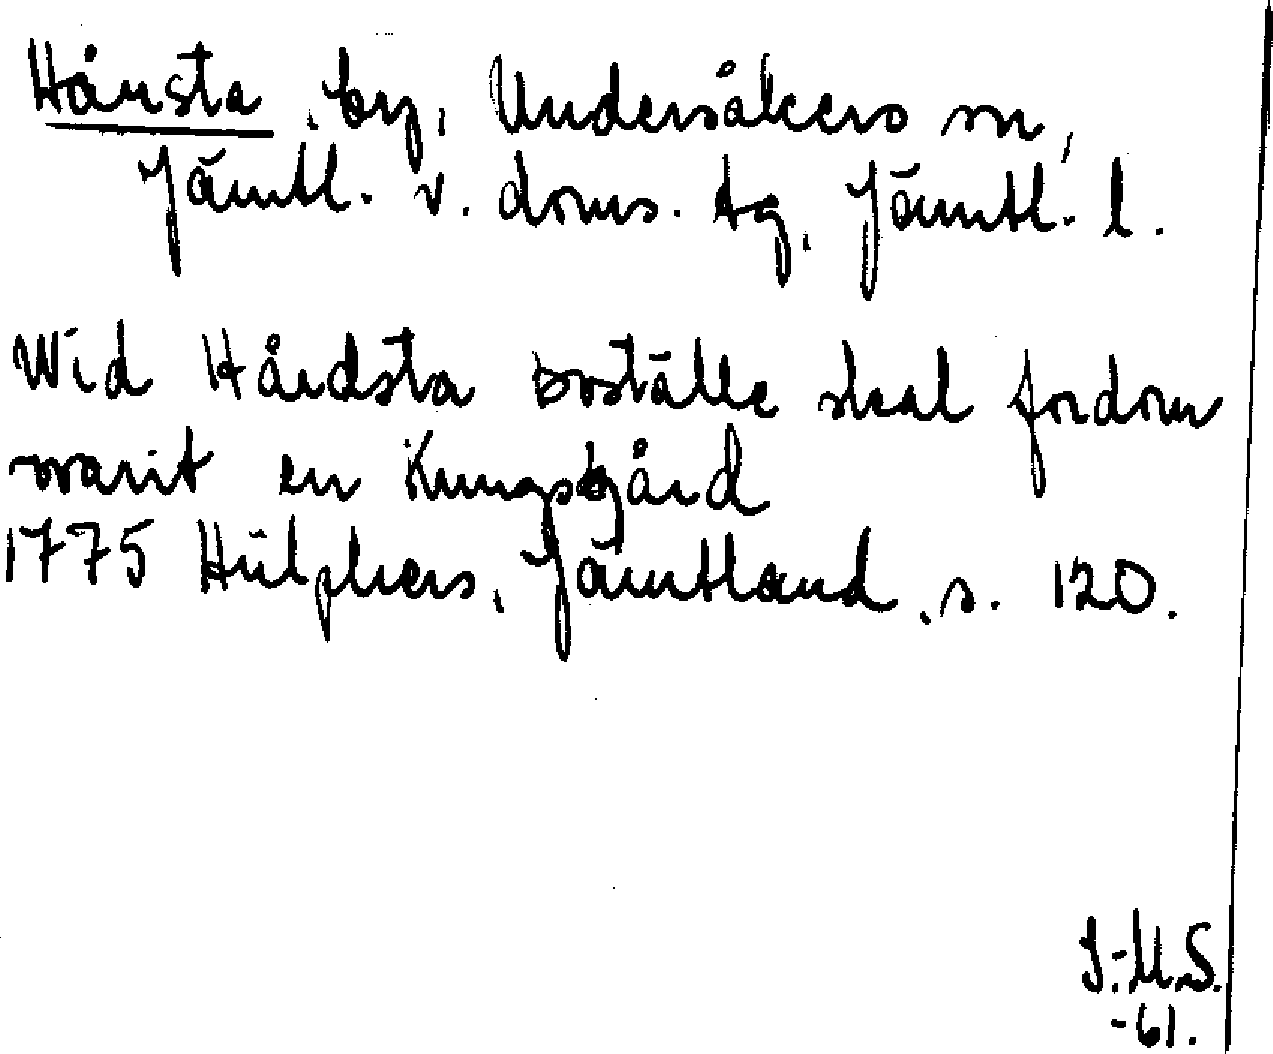 Hårsta, by, Undersåkers sn,
Jämtl. v. doms. tg, Jämtl. l.
Wid Hårdsta boställe skal fordom
warit en Kungsgård
1775 Hülphers, Jämtland, s. 120.
I.-M.S.
-61.